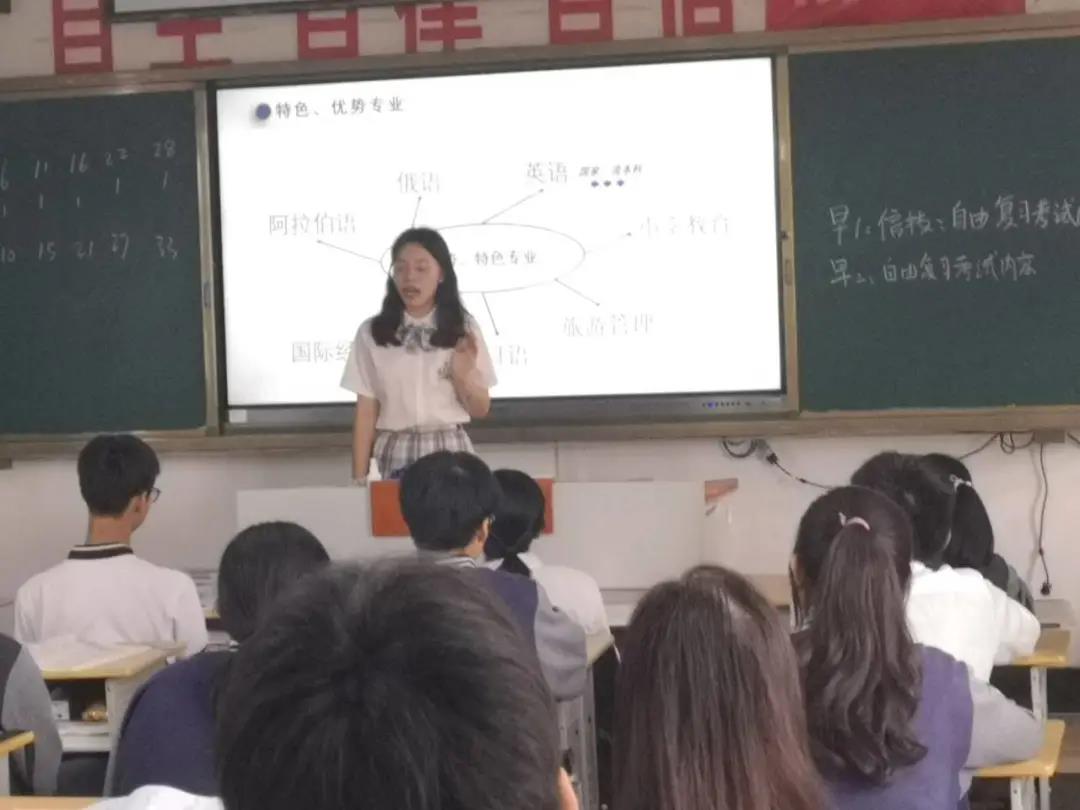 自 立 自律 自 信
特色、优势专业
俄语
英语 国家一流本科
阿拉伯语
小学教育
、特色专业
旅游管理
国际经
日语
6 11 16 22 28
1 1 1 1 1
10 15 21 27 33
早1:信技:自由复习考试
早二:自由复习考试内容